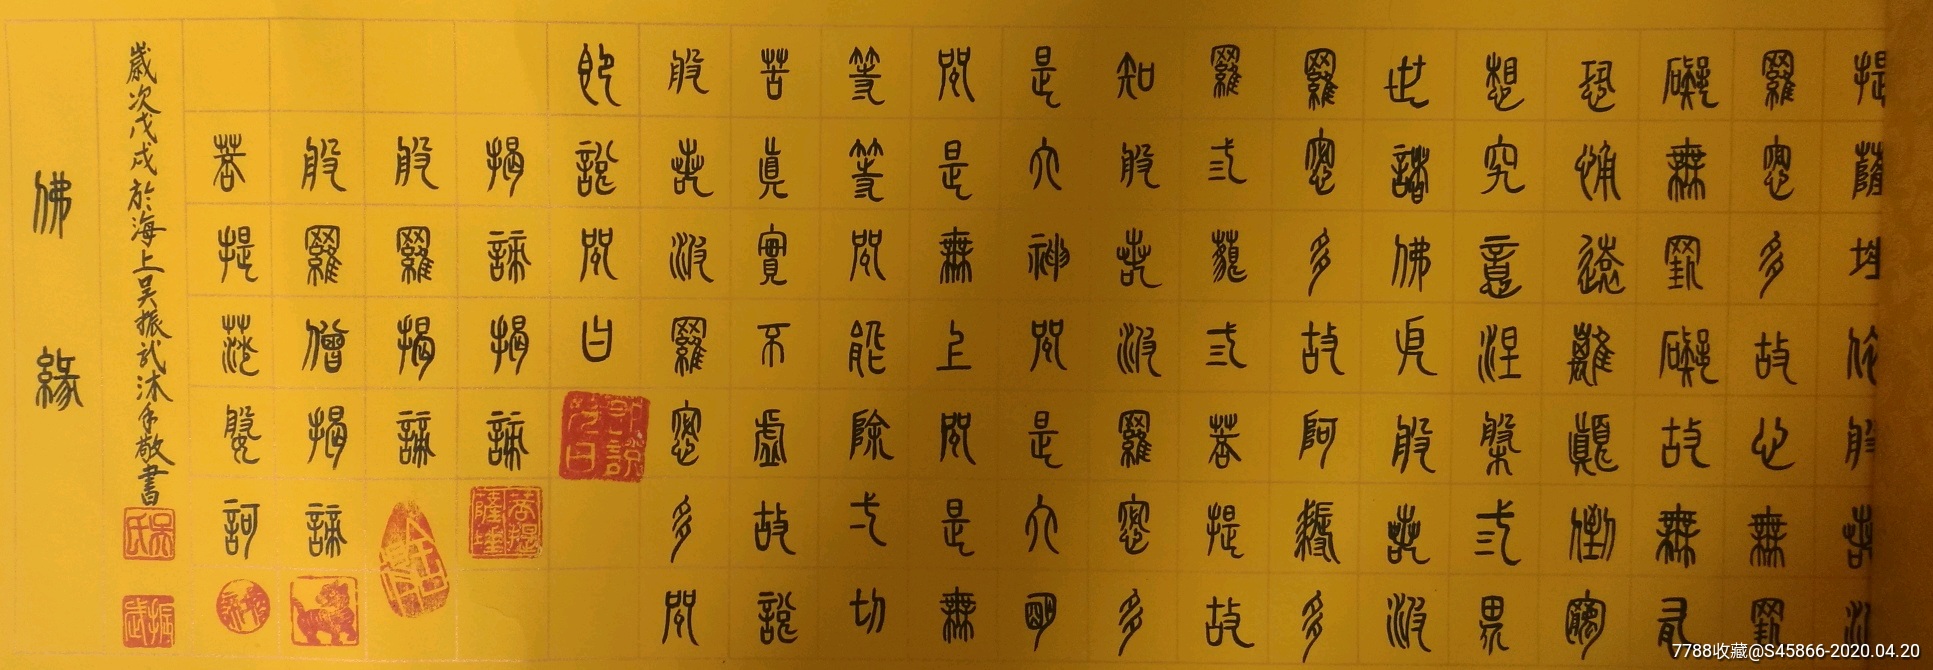 提薩埵依般若波
羅蜜多故心無罣
礙無罣礙故無有
恐怖遠離顛倒夢
想究竟涅槃三界
世諸佛依般若波
羅蜜多故阿耨多
羅三藐三菩提故
知般若波羅蜜多
是大神咒是大明
咒是無上咒是無
等等咒能除一切
苦真實不虛故說
般若波羅蜜多咒
即說咒曰
即說咒曰
揭諦揭諦
菩提薩埵
般羅揭諦
般羅僧揭諦
菩提薩婆訶
歲次戊戌於海上吳振武沐手敬書
吳氏
振武
佛緣
7788收藏@S45866-2020.04.20